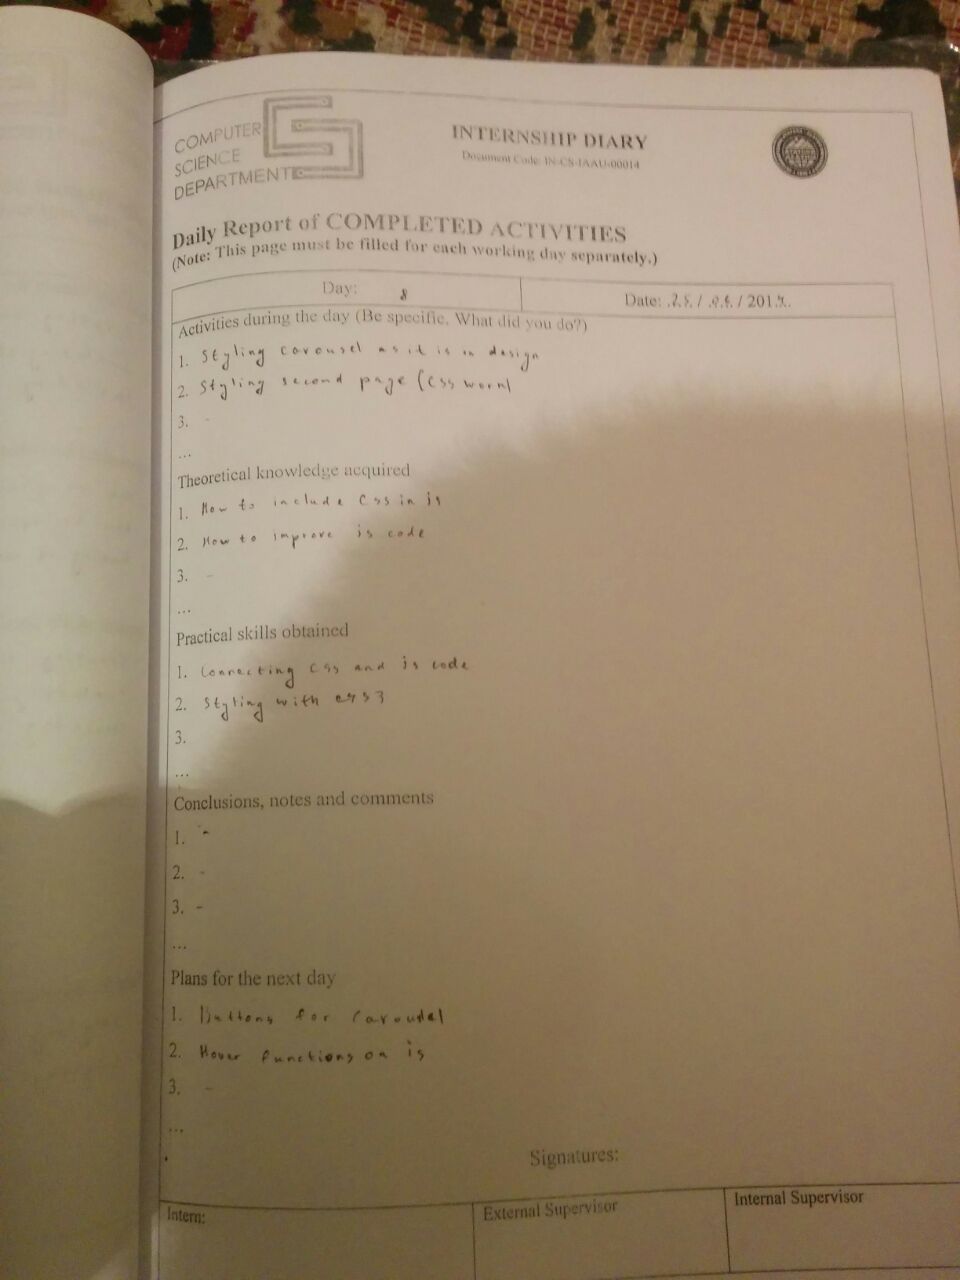 COMPUTER
SCIENCE
DEPARTMENT
INTERNSHIP DIARY
Document Code: IN-CS-IAAU-00014
Daily Report of COMPLETED ACTIVITIES
(Note: This page must be filled for each working day separately.)
Day: 8
Date: / / 201
Activities during the day (Be specific. What did you do?)
1. Styling carousel as it is in design
2. Styling second page (css
3. -
...
Theoretical knowledge acquired
1. How to include Css in js
2. How to improve js code
3. -
...
Practical skills obtained
1. Connecting css and js code
2. Styling with css3
3.
...
Conclusions, notes and comments
1. -
2. -
3. -
...
Plans for the next day
1. Buttons for carousel
2. Hover functions on js
3. -
...
Signatures:
Intern:
External Supervisor
Internal Supervisor